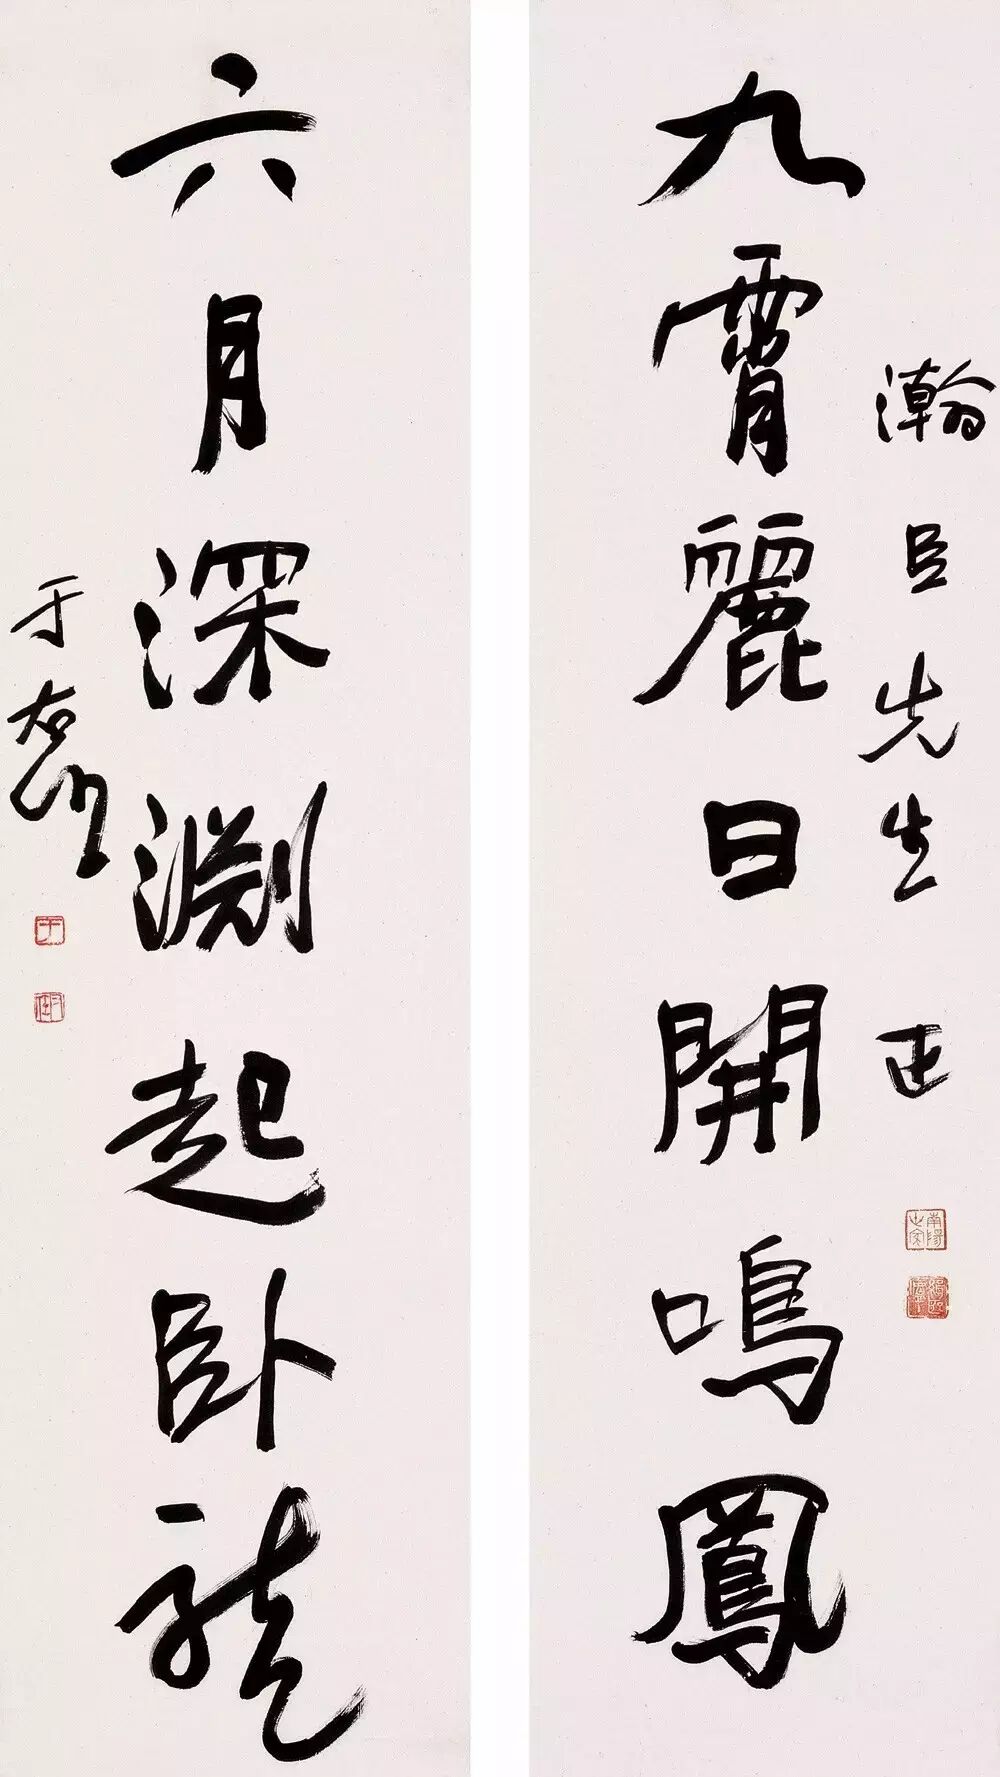 九霄麗日開鳴鳳
瀚臣先生正
六月深淵起卧龍
于右任